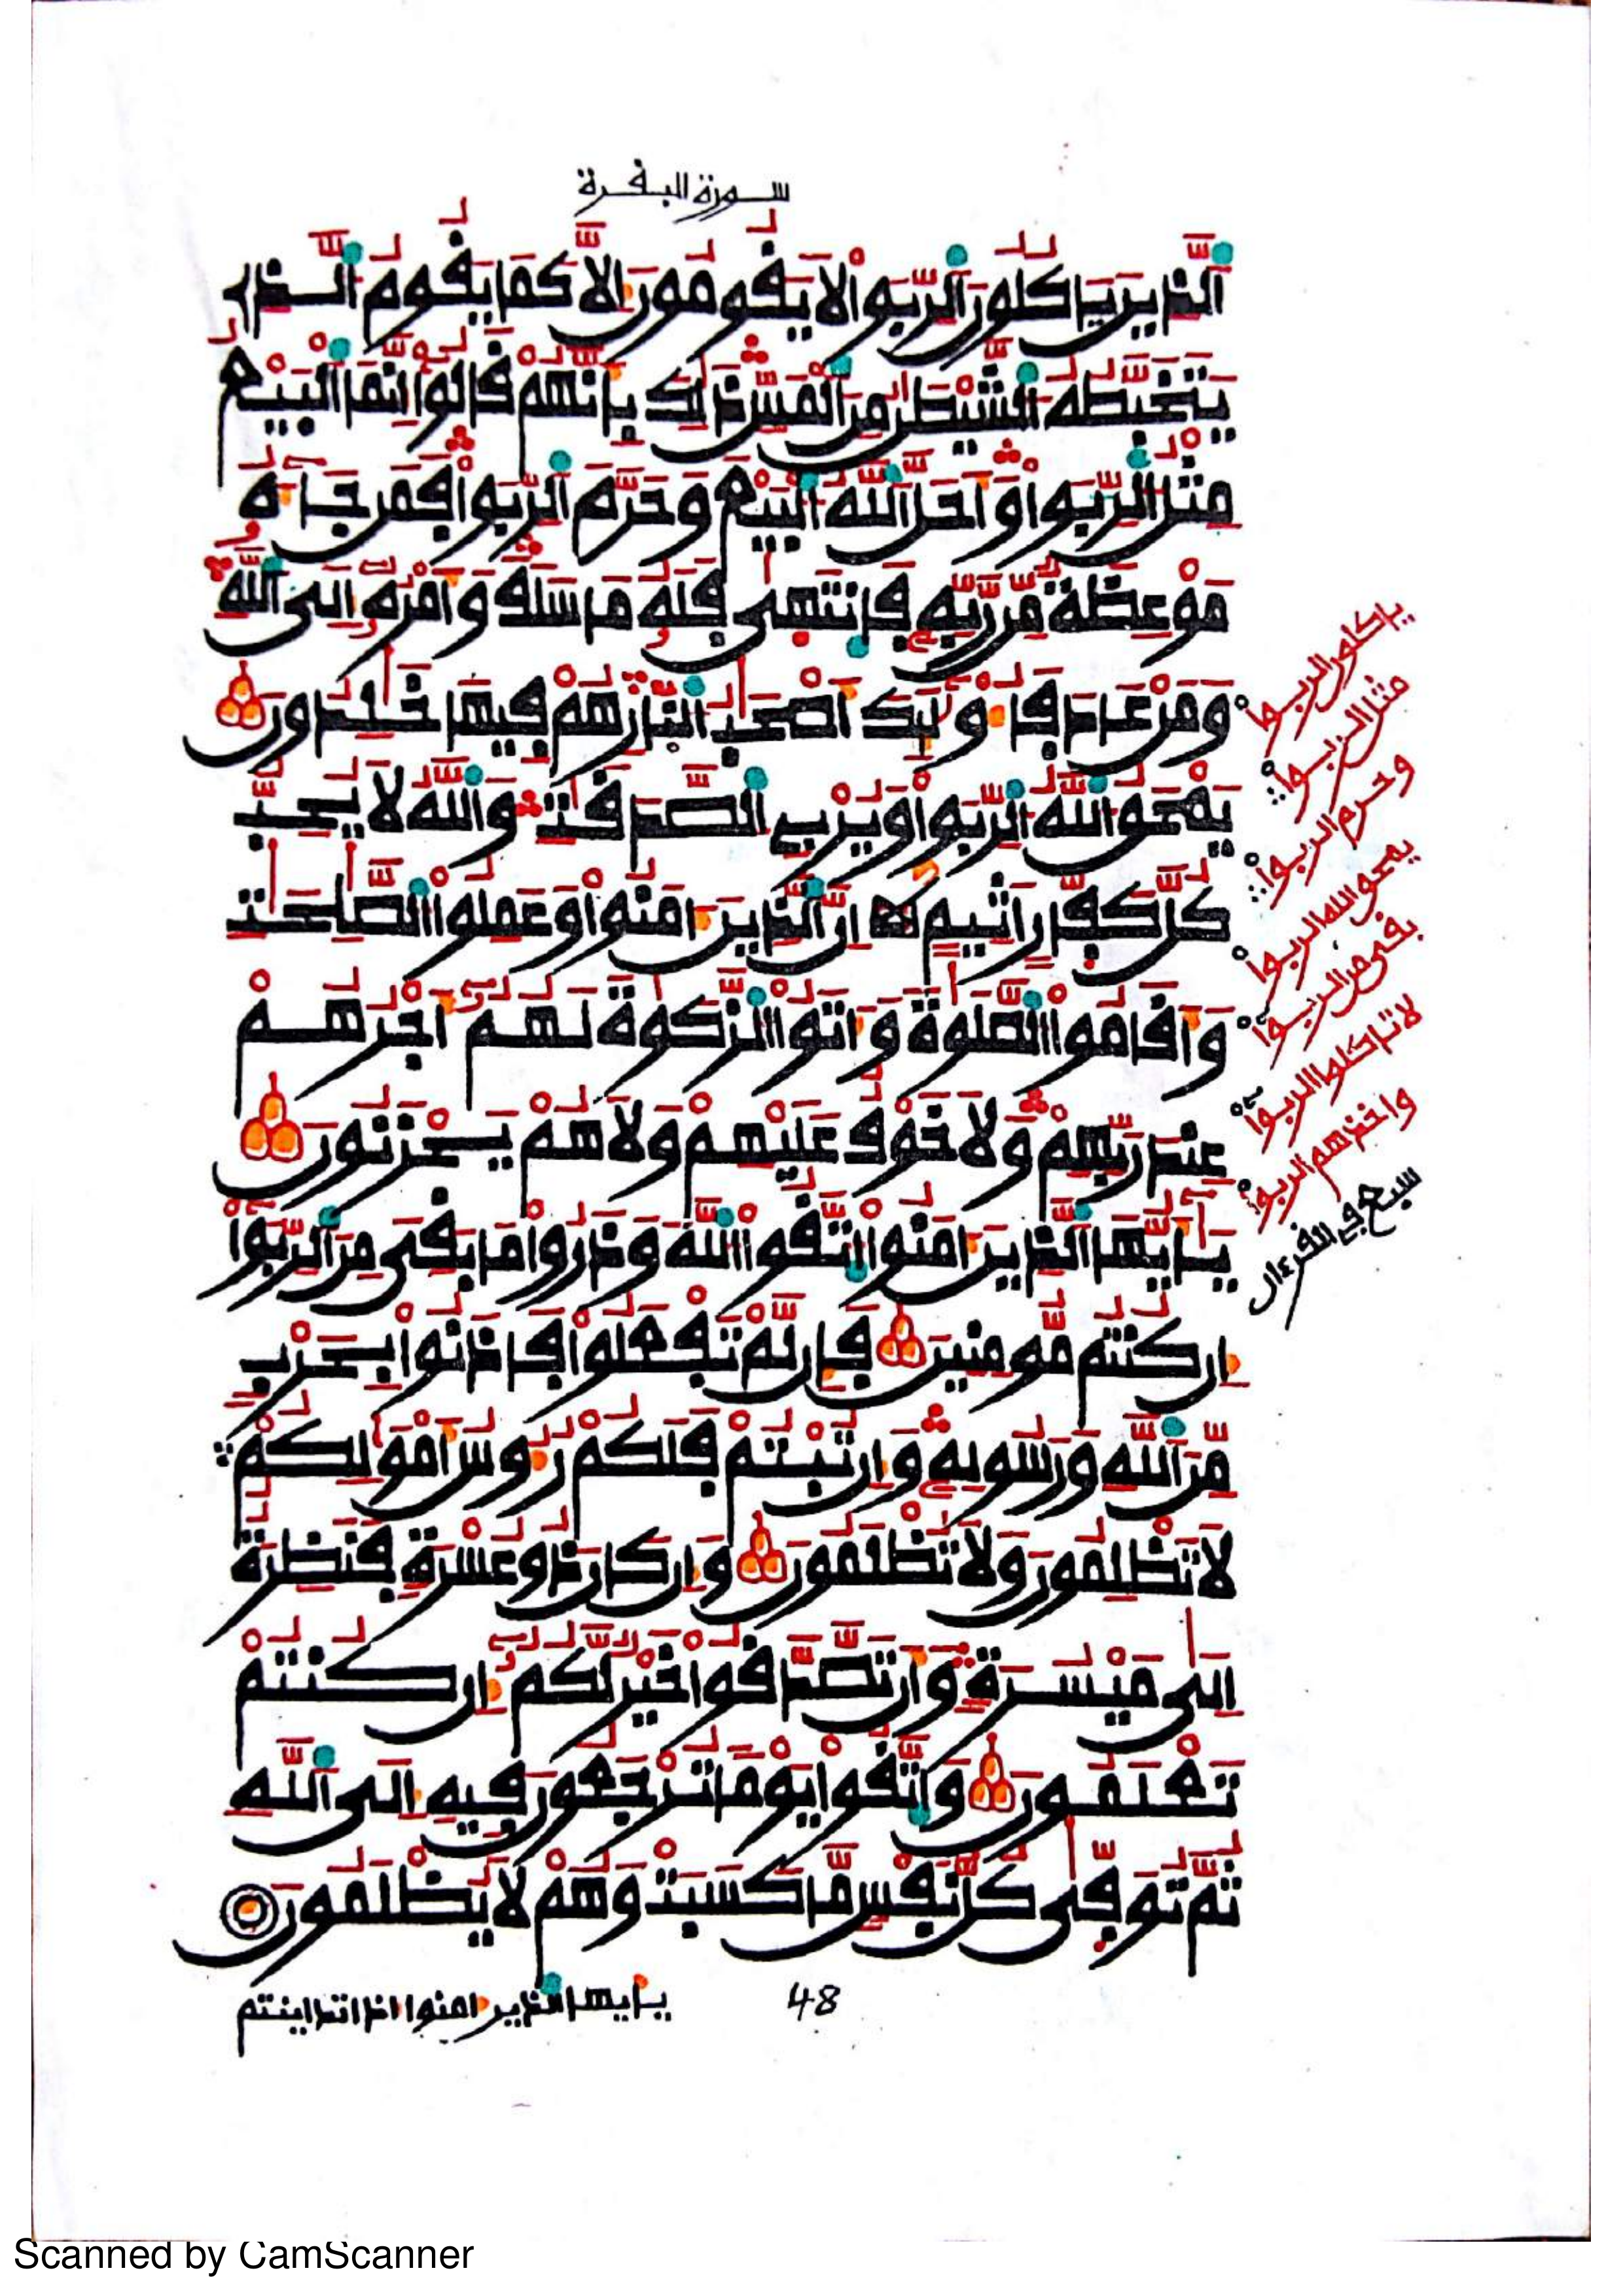 سورة البقرة
الذين ياكلون الربوا لا يقومون إلا كما يقوم الذى
يتخبطه الشيطن من المس ذلك بأنهم قالوا إنما البيع
مثل الربوا وأحل الله البيع وحرم الربوا فمن جاءه
موعظة من ربه فانتهى فله ما سلف وأمره إلى الله
ومن عاد فأولئك أصحب النار هم فيها خلدون
يمحق الله الربوا ويربى الصدقت والله لا يحب
كل كفار أثيم إن الذين ءامنوا وعملوا الصلحت
وأقاموا الصلوة وءاتوا الزكوة لهم أجرهم
عند ربهم ولا خوف عليهم ولا هم يحزنون
يأيها الذين ءامنوا اتقوا الله وذروا ما بقى من الربوا
إن كنتم مومنين فإن لم تفعلوا فاذنوا بحرب
من الله ورسوله وإن تبتم فلكم رءوس أمولكم
لا تظلمون ولا تظلمون وإن كان ذو عسرة فنظرة
إلى ميسرة وأن تصدقوا خير لكم إن كنتم
تعلمون واتقوا يوما ترجعون فيه إلى الله
ثم توفى كل نفس ما كسبت وهم لا يظلمون
ياكلون الربوا
مثل الربوا
وحرم الربوا
يمحو الله الربوا
بقى من الربوا
لا تاكلوا الربوا
واخذهم الربوا
سبع فى القرءان
48
يأيها الذين ءامنوا اذا تداينتم
Scanned by CamScanner